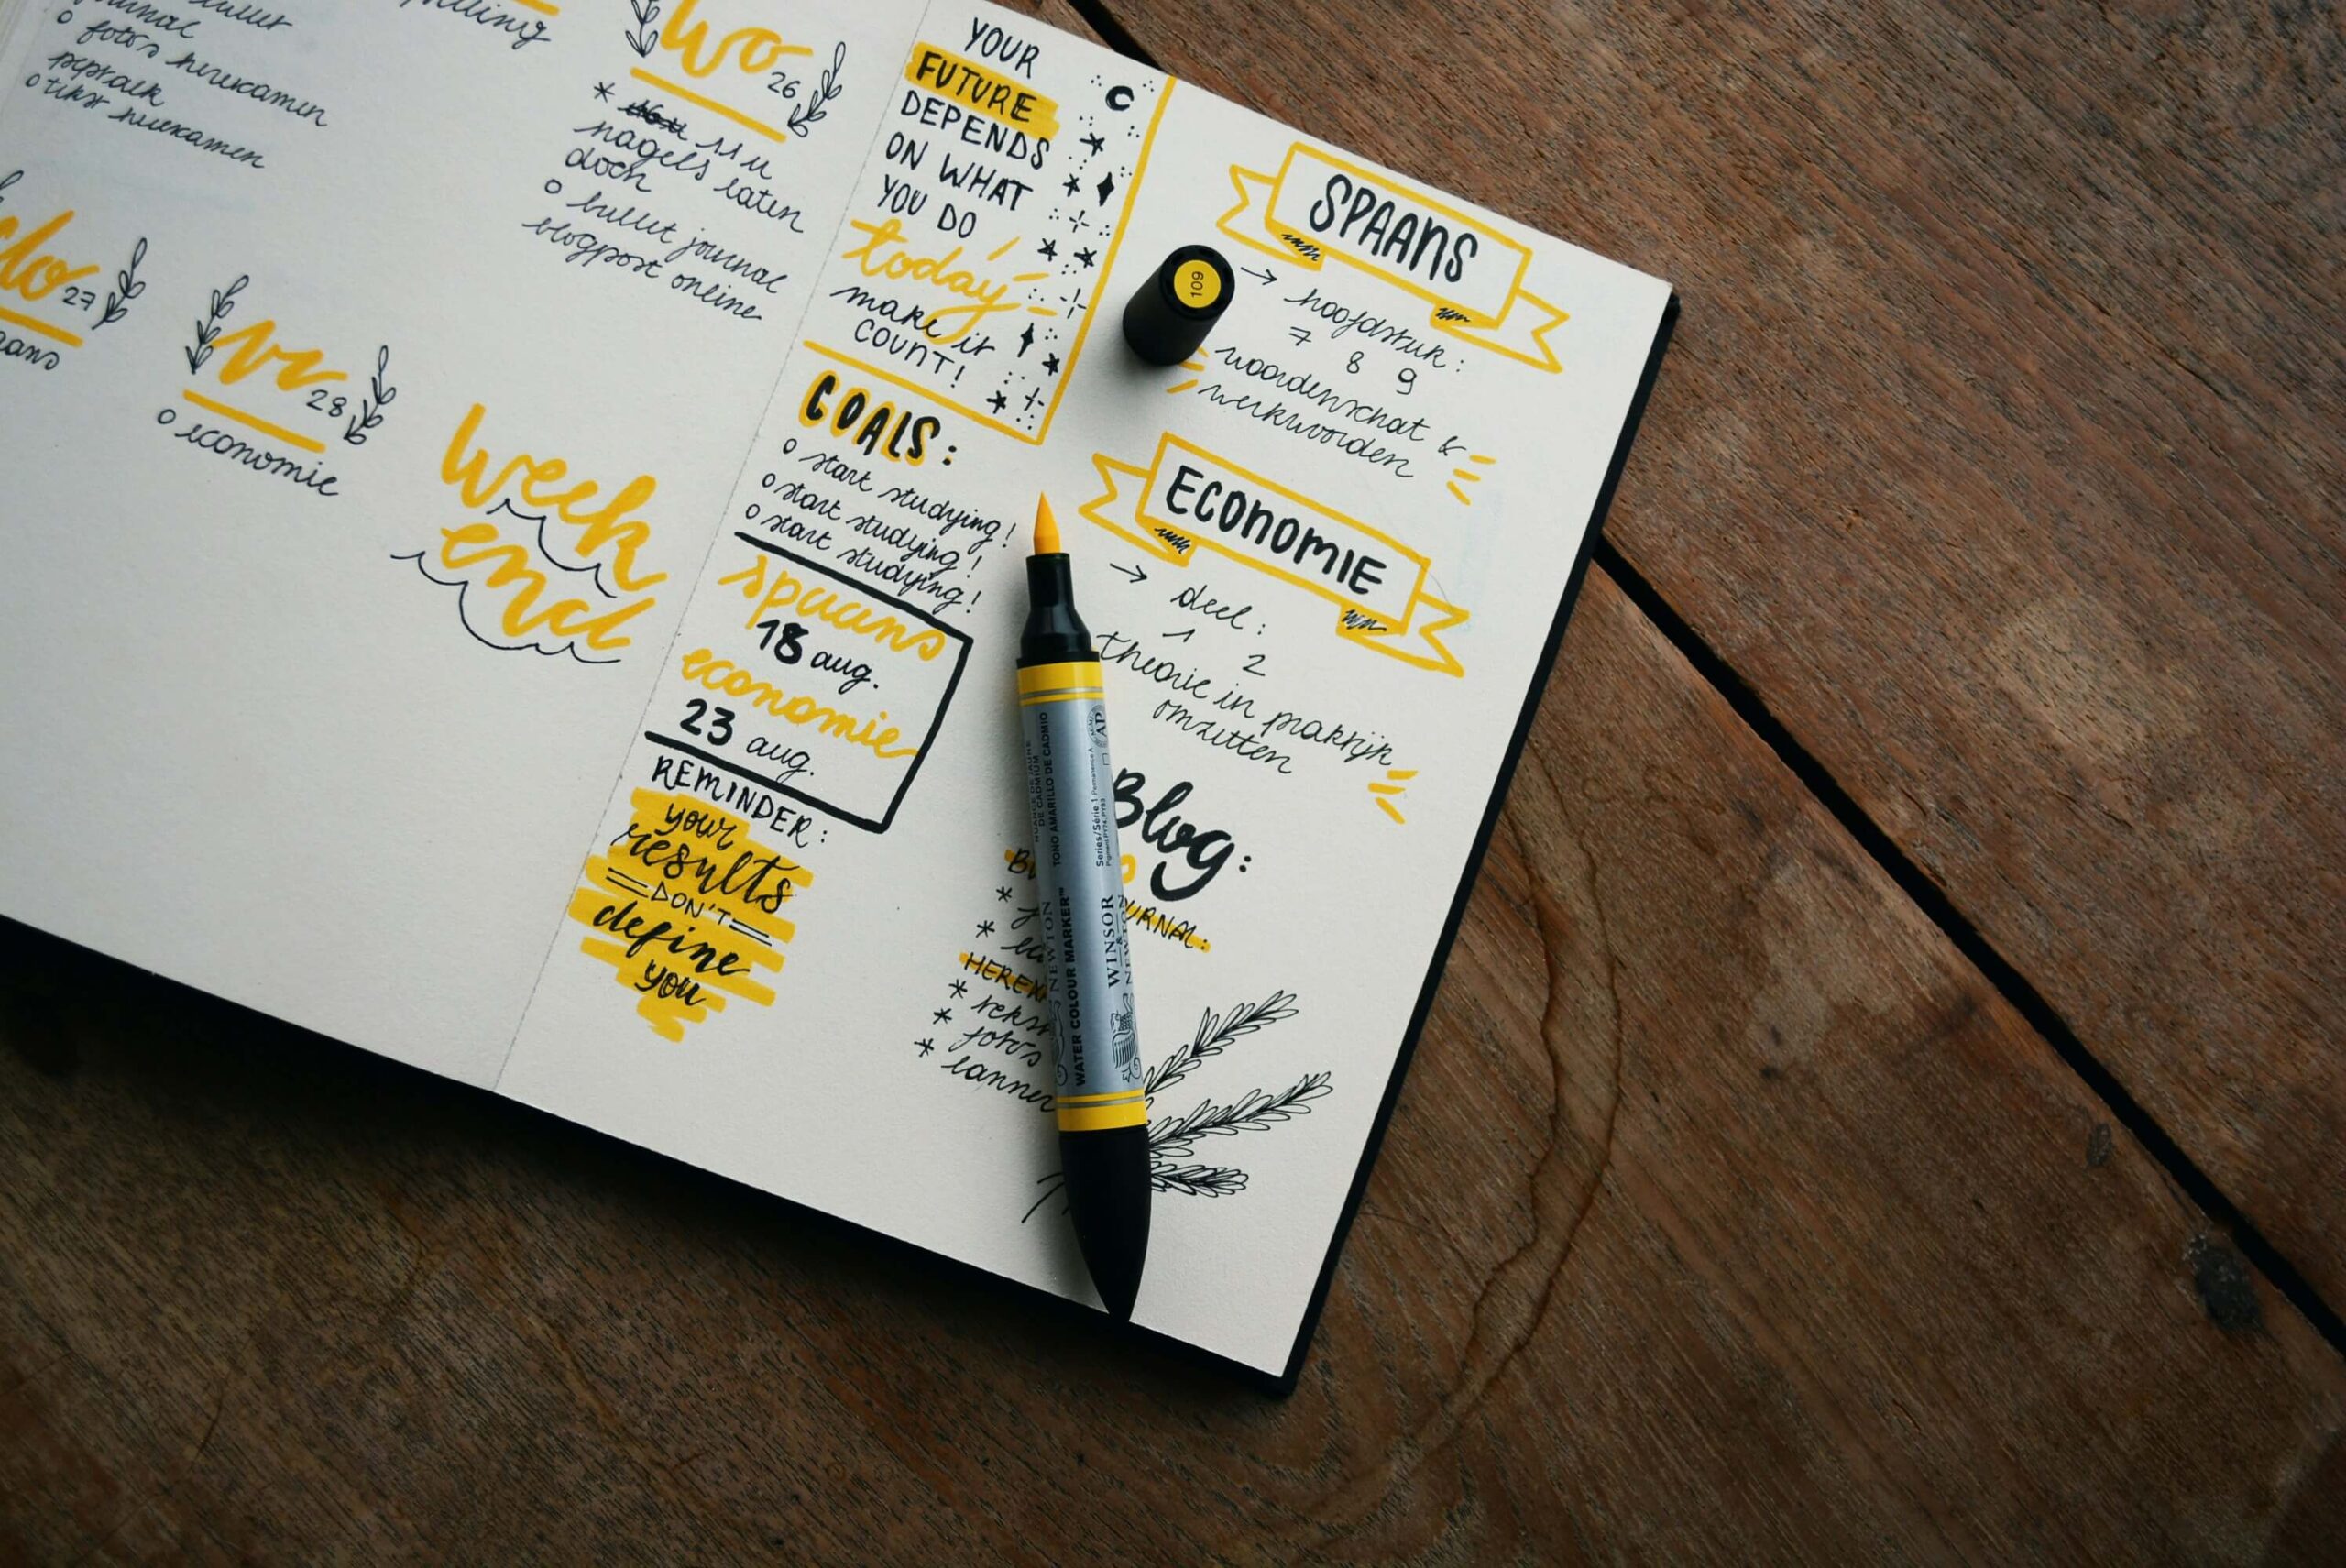 bullet
journal
o foto's herexamen
peptalk
o tekst herexamen
wo
26
* 11 u
nagels laten
doen
o bullet journal
blogpost online
do
27
vr
28
o economie
week
end
YOUR
FUTURE
DEPENDS
ON WHAT
YOU DO
today
make it
COUNT!
GOALS:
o start studying!
o start studying!
o start studying!
spaans
18 aug.
economie
23 aug.
REMINDER:
your
results
=DON'T=
define
you
SPAANS
→ hoofdstuk:
7 8 9
woordenschat &
werkwoorden
ECONOMIE
→ deel:
1 2
theorie in praktijk
omzetten
Blog:
URNAL:
HEREX
* tekst
* foto's
*
109
WINSOR
&
NEWTON
WATER COLOUR MARKER™
NEWTON
Series/Série 1 Permanence A
TONO AMARILLO DE CADMIO
DE CADMIUM
AP